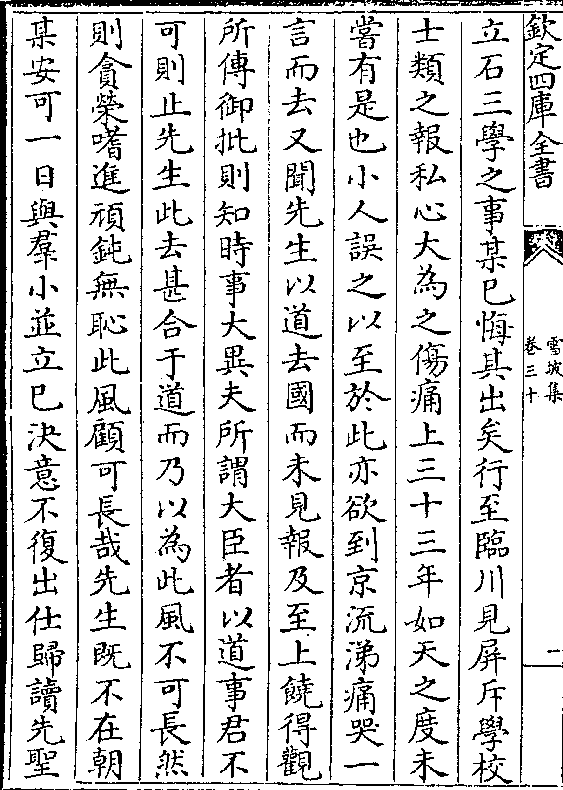 欽定四庫全書
雪坡集
卷三十
一
立石三學之事某已悔其出矣行至臨川見屏斥學校
士類之報私心大為之傷痛上三十三年如天之度未
嘗有是也小人誤之以至於此亦欲到京流涕痛哭一
言而去又聞先生以道去國而未見報及至上饒得觀
所傳御批則知時事大異夫所謂大臣者以道事君不
可則止先生此去甚合于道而乃以為此風不可長然
則貪榮嗜進頑鈍無恥此風顧可長哉先生既不在朝
某安可一日與羣小並立已決意不復出仕歸讀先聖